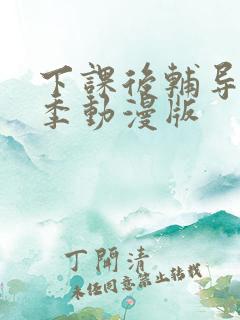 下課後輔导
季動漫版
丁開清
未经同意禁止转载